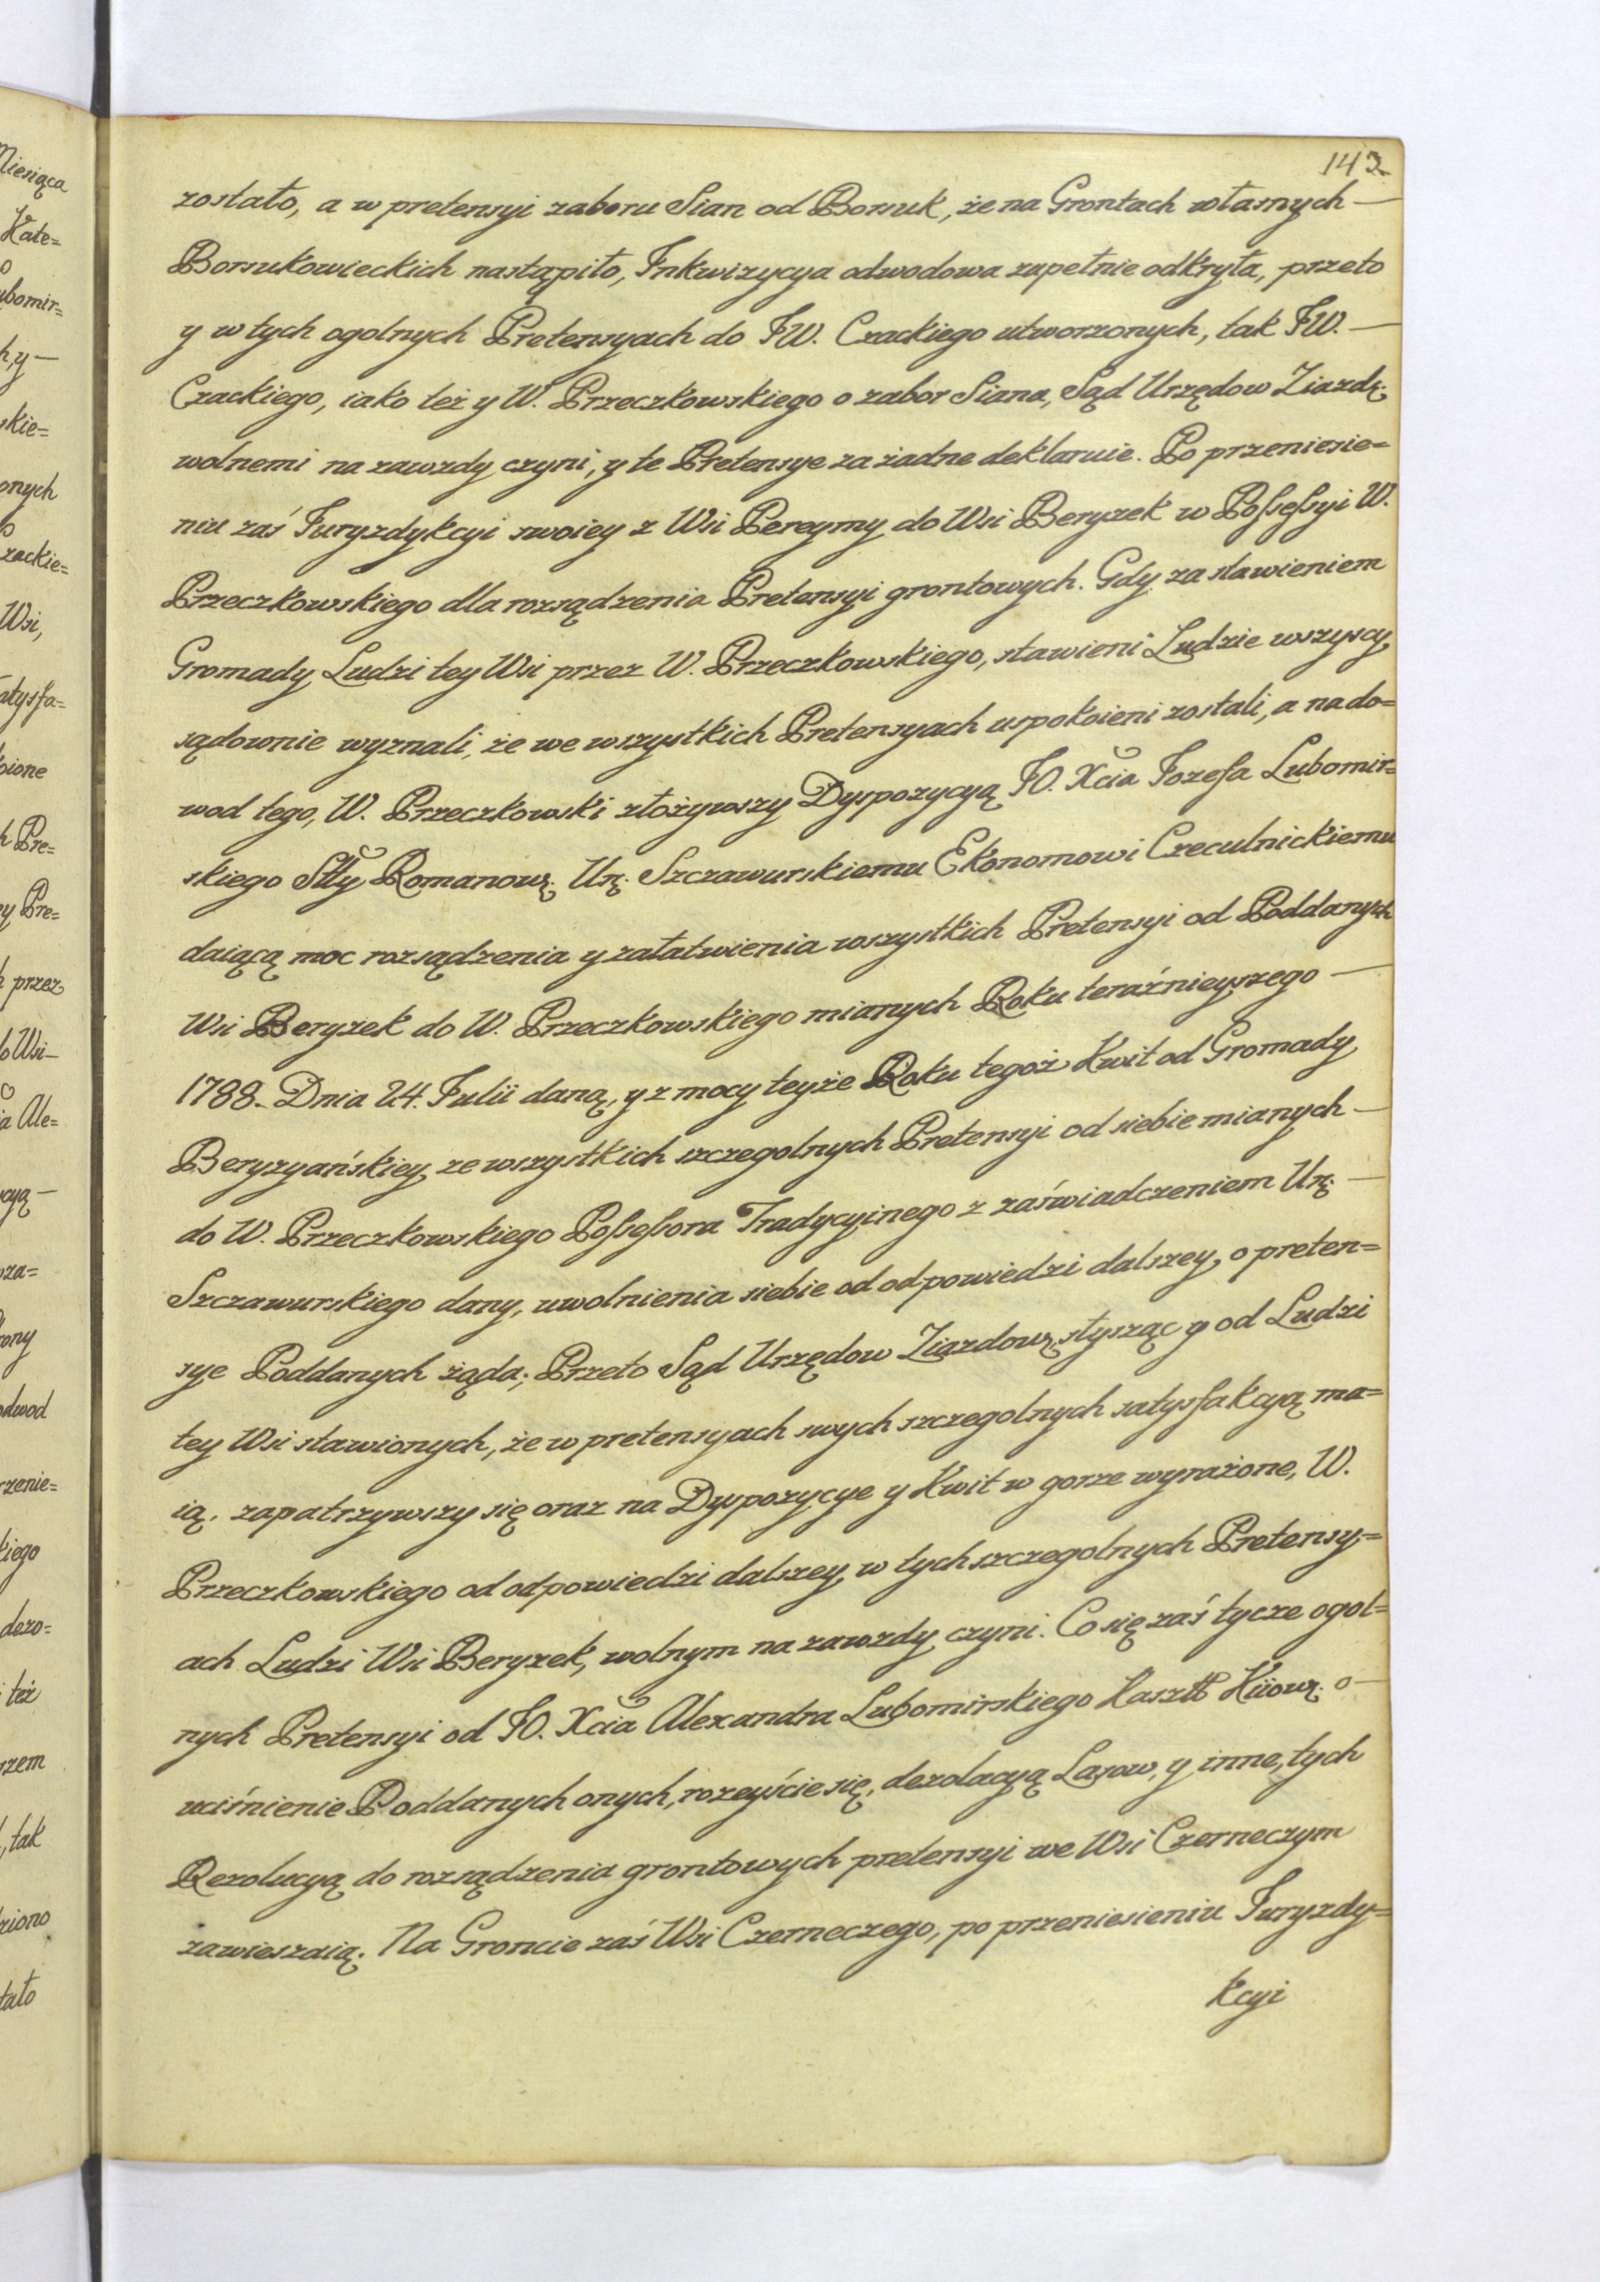 143
zostało, a w pretensyi zaboru Sian od Borsuk, że na Grontach własnych —
Borsukowieckich nastąpiło, Inkwizycya odwodowa zapełnie odkryła, przeto
y w tych ogolnych Pretensyach do JW. Czackiego utworzonych, tak JW. —
Czackiego, iako też y W. Przeczkowskiego o zabor Siana, Sąd Urzędow Ziazdę.
wolnemi na zawzdy czyni, y te Pretensye za żadne deklaruie. Po przeniesie=
niu zaś Juryzdykcyi swoiey z Wsi Pereymy do Wsi Beryzek w Possessyi W.
Przeczkowskiego dla rozsądzenia Pretensyi grontowych. Gdy za stawieniem
Gromady Ludzi tey Wsi przez W. Przeczkowskiego, stawieni Ludzie wszyscy
sądownie wyznali, że we wszystkich Pretensyach uspokoieni zostali, a na do=
wod tego, W. Przeczkowski złożywszy Dyspozycyą JO. Xcia Jozefa Lubomir=
skiego Stty Romanowę. Urę. Szczawurskiemu Ekonomowi Czeculnickiemu
daiącą moc rozsądzenia y załatwienia wszystkich Pretensyi od Poddanych
Wsi Beryzek do W. Przeczkowskiego mianych Roku teraźnieyszego —
1788. Dnia 24. Julii daną, y z mocy teyże Roku tegoż Kwit od Gromady
Beryzyańskiey ze wszystkich szczegolnych Pretensyi od siebie mianych —
do W. Przeczkowskiego Possessora Tradycyinego z zaświadczeniem Urę. —
Szczawurskiego dany, uwolnienia siebie od odpowiedzi dalszey, o preten=
sye Poddanych żąda; Przeto Sąd Urzędow Ziazdowę. słysząc y od Ludzi
tey Wsi stawionych, że w pretensyach swych szczegolnych satysfakcyą ma=
ią, zapatrzywszy się oraz na Dyspozycye y Kwit w gorze wyrażone, W.
Przeczkowskiego od odpowiedzi dalszey w tych szczegolnych Pretensy=
ach Ludzi Wsi Beryzek, wolnym na zawzdy czyni. Co się zaś tycze ogol=
nych Pretensyi od JO. Xcia Alexandra Lubomirskiego Kasztt Kiiowę. o —
uciśnienie Poddanych onych, rozeyście się, dezolacyą Lasow, y inne, tych
Rezolucyą do rozsądzenia grontowych pretensyi we Wsi Czerneczym
zawieszaią. Na Groncie zaś Wsi Czerneczego, po przeniesieniu Juryzdy=
kcyi